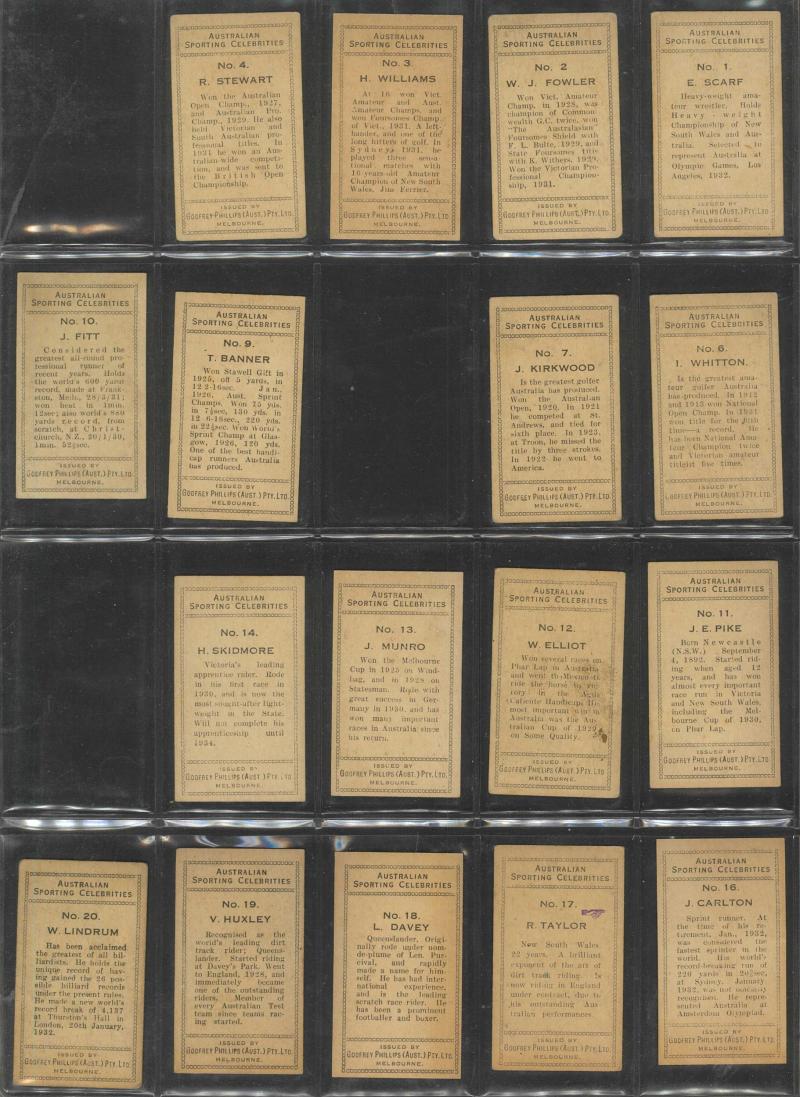 AUSTRALIAN
SPORTING CELEBRITIES
No. 4.
R. STEWART
Won the Australian
Open Champ., 1927,
and Australian Pro.
Champ., 1929. He also
held Victorian and
South Australian pro-
fessional titles. In
1931 he won an Aus-
tralian-wide competi-
tion, and was sent to
the British Open
Championship.
ISSUED BY
GODFREY PHILLIPS (AUST.) PTY. LTD.
MELBOURNE.
AUSTRALIAN
SPORTING CELEBRITIES
No. 3
H. WILLIAMS
At 16 won Vict.
Amateur and Aust.
Amateur Champs. and
won Foursomes Champ.
of Vict., 1931. A left-
hander, and one of the
long hitters of golf. In
Sydney 1931, he
played three sensa-
tional matches with
16-years-old Amateur
Champion of New South
Wales, Jim Ferrier.
ISSUED BY
GODFREY PHILLIPS (AUST.) PTY. LTD
MELBOURNE.
AUSTRALIAN
SPORTING CELEBRITIES
No. 2
W. J. FOWLER
Won Vict. Amateur
Champ. in 1928, was
champion of Common-
wealth G.C. twice, won
"The Australasian"
Foursomes Shield with
F. L. Bulte, 1929, and
State Foursomes title
with K. Withers, 1929.
Won the Victorian Pro-
fessional Champion-
ship, 1931.
ISSUED BY
GODFREY PHILLIPS (AUST.) PTY. LTD.
MELBOURNE.
AUSTRALIAN
SPORTING CELEBRITIES
No. 1.
E. SCARF
Heavy-weight ama-
teur wrestler. Holds
Heavy-weight
Championship of New
South Wales and Aus-
tralia. Selected to
represent Australia at
Olympic Games, Los
Angeles, 1932.
ISSUED BY
GODFREY PHILLIPS (AUST.) PTY. LTD.
MELBOURNE.
AUSTRALIAN
SPORTING CELEBRITIES
No. 10.
J. FITT
Considered the
greatest all-round pro-
fessional runner of
recent years. Holds
the world's 600 yards
record, made at Frank-
ston, Melb., 28/3/31;
won heat in 1min.
12sec; also world's 880
yards record, from
scratch, at Christ-
church, N.Z., 20/1/30,
1min. 52½sec.
ISSUED BY
GODFREY PHILLIPS (AUST.) PTY. LTD.
MELBOURNE.
AUSTRALIAN
SPORTING CELEBRITIES
No. 9.
T. BANNER
Won Stawell Gift in
1925, off 5 yards, in
12 2-16sec. Jan.,
1926, Aust. Sprint
Champs. Won 75 yds.
in 7½sec, 130 yds. in
12 6-16sec., 220 yds.
in 22¼sec. Won World's
Sprint Champ at Glas-
gow, 1926, 120 yds.
One of the best handi-
cap runners Australia
has produced.
ISSUED BY
GODFREY PHILLIPS (AUST.) PTY. LTD.
MELBOURNE.
AUSTRALIAN
SPORTING CELEBRITIES
No. 7.
J. KIRKWOOD
Is the greatest golfer
Australia has produced.
Won the Australian
Open, 1920. In 1921
he competed at St.
Andrews, and tied for
sixth place. In 1923,
at Troon, he missed the
title by three strokes.
In 1922 he went to
America.
ISSUED BY
GODFREY PHILLIPS (AUST.) PTY. LTD.
MELBOURNE.
AUSTRALIAN
SPORTING CELEBRITIES
No. 6.
I. WHITTON.
Is the greatest ama-
teur golfer Australia
has produced. In 1912
and 1913 won National
Open Champ. In 1931
won title for the fifth
time—a record. He
has been National Ama-
teur Champion twice
and Victorian amateur
titlist five times.
ISSUED BY
GODFREY PHILLIPS (AUST.) PTY. LTD.
MELBOURNE.
AUSTRALIAN
SPORTING CELEBRITIES
No. 14.
H. SKIDMORE
Victoria's leading
apprentice rider. Rode
in his first race in
1930, and is now the
most sought-after light-
weight in the State.
Will not complete his
apprenticeship until
1934.
ISSUED BY
GODFREY PHILLIPS (AUST.) PTY. LTD.
MELBOURNE.
AUSTRALIAN
SPORTING CELEBRITIES
No. 13.
J. MUNRO
Won the Melbourne
Cup in 1925 on Wind-
bag, and in 1928 on
Statesman. Rode with
great success in Ger-
many in 1930, and has
won many important
races in Australia since
his return.
ISSUED BY
GODFREY PHILLIPS (AUST.) PTY. LTD.
MELBOURNE.
AUSTRALIAN
SPORTING CELEBRITIES
No. 12.
W. ELLIOT
Won several races on
Phar Lap in Australia
and went to Mexico to
ride the horse to vic-
tory in the Agua
Caliente Handicap. His
most important win in
Australia was the Aus-
tralian Cup of 1929
on Some Quality.
ISSUED BY
GODFREY PHILLIPS (AUST.) PTY. LTD.
MELBOURNE.
AUSTRALIAN
SPORTING CELEBRITIES
No. 11.
J. E. PIKE
Born Newcastle
(N.S.W.) September
4, 1892. Started rid-
ing when aged 12
years, and has won
almost every important
race run in Victoria
and New South Wales,
including the Mel-
bourne Cup of 1930,
on Phar Lap.
ISSUED BY
GODFREY PHILLIPS (AUST.) PTY. LTD.
MELBOURNE.
AUSTRALIAN
SPORTING CELEBRITIES
No. 20.
W. LINDRUM
Has been acclaimed
the greatest of all bil-
liardists. He holds the
unique record of hav-
ing gained the 26 pos-
sible billiard records
under the present rules.
He made a new world's
record break of 4,137
at Thurston's Hall in
London, 20th January,
1932.
ISSUED BY
GODFREY PHILLIPS (AUST.) PTY. LTD.
MELBOURNE.
AUSTRALIAN
SPORTING CELEBRITIES
No. 19.
V. HUXLEY
Recognised as the
world's leading dirt
track rider; Queens-
lander. Started riding
at Davey's Park. Went
to England, 1928, and
immediately became
one of the outstanding
riders. Member of
every Australian Test
team since teams rac-
ing started.
ISSUED BY
GODFREY PHILLIPS (AUST.) PTY. LTD.
MELBOURNE.
AUSTRALIAN
SPORTING CELEBRITIES
No. 18.
L. DAVEY
Queenslander. Origin-
ally rode under nom-
de-plume of Len. Pur-
cival, and rapidly
made a name for him-
self. He has had inter-
national experience,
and is the leading
scratch race rider. He
has been a prominent
footballer and boxer.
ISSUED BY
GODFREY PHILLIPS (AUST.) PTY. LTD.
MELBOURNE.
AUSTRALIAN
SPORTING CELEBRITIES
No. 17.
R. TAYLOR
New South Wales
22 years. A brilliant
exponent of the art of
dirt track riding. Is
now riding in England
under contract, due to
his outstanding Aus-
tralian performances.
ISSUED BY
GODFREY PHILLIPS (AUST.) PTY. LTD.
MELBOURNE.
AUSTRALIAN
SPORTING CELEBRITIES
No. 16.
J. CARLTON
Sprint runner. At
the time of his re-
tirement, Jan., 1932,
was considered the
fastest sprinter in the
world. His world's
record-breaking run of
220 yards in
at Sydney, January
1932, was not officially
recognised. He repre-
sented Australia at
Amsterdam Olympiad.
ISSUED BY
GODFREY PHILLIPS (AUST.) PTY. LTD.
MELBOURNE.